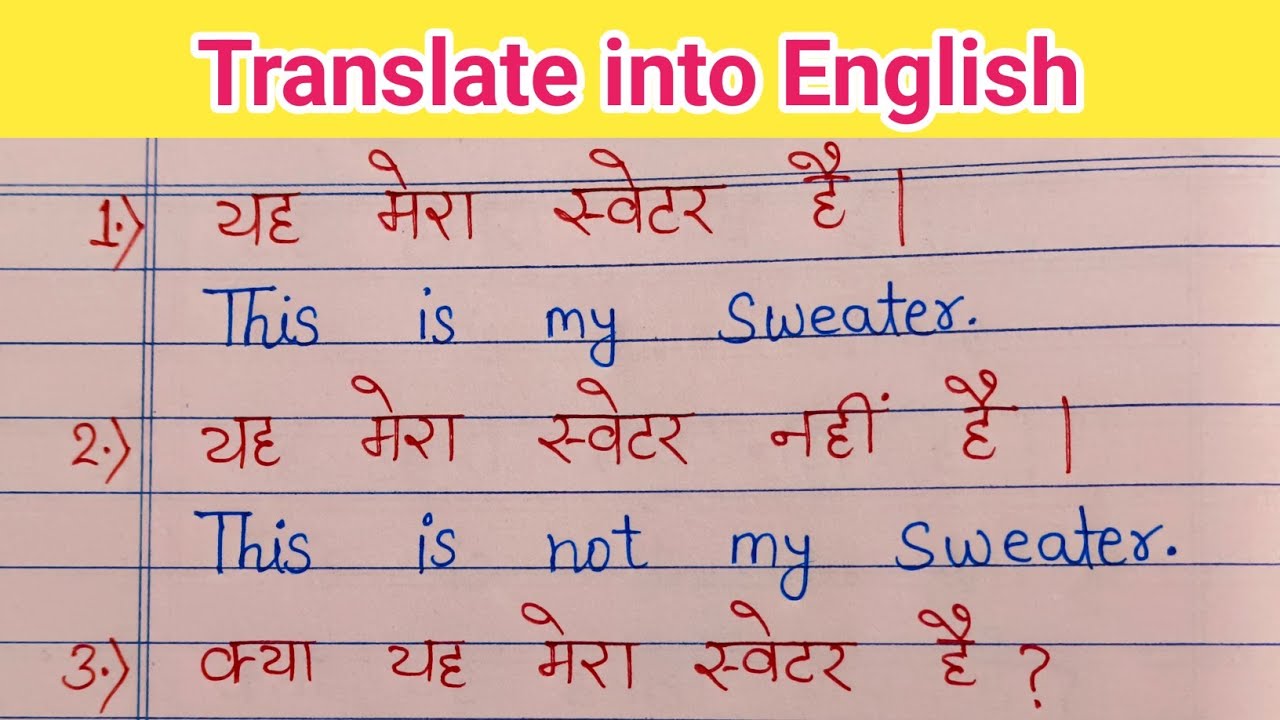 Translate into English
1.) यह मेरा स्वेटर है |
This is my Sweater.
2.) यह मेरा स्वेटर नहीं है |
This is not my Sweater.
3.) क्या यह मेरा स्वेटर है ?